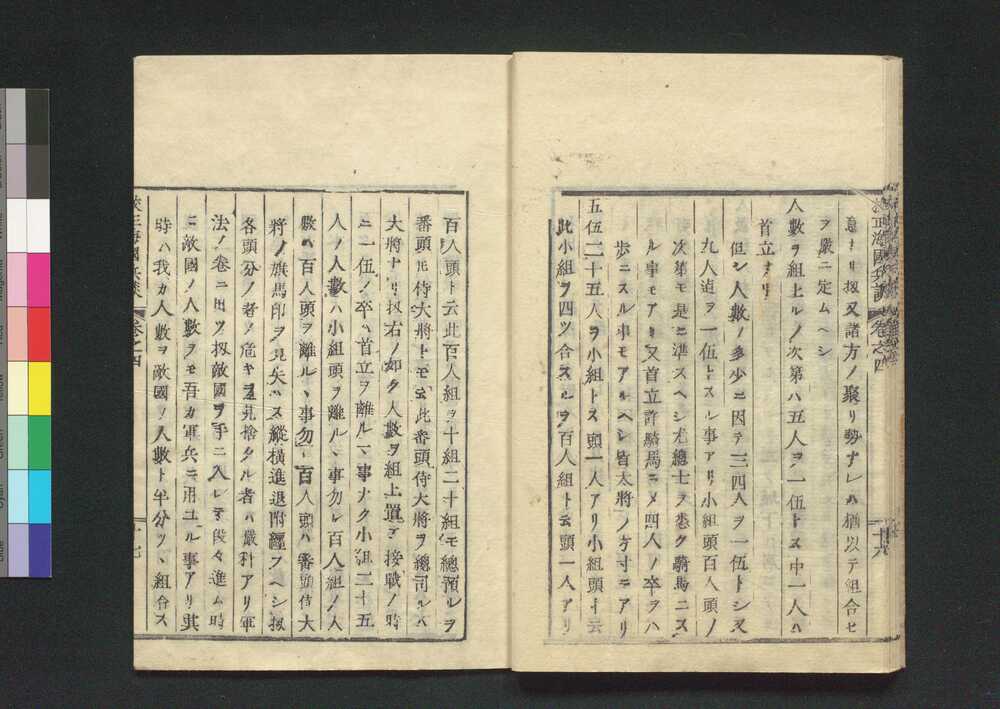 息ナリ扨又諸方ノ聚リ勢ナレハ猶以テ組合セ
ヲ嚴ニ定ムヘシ
人數ヲ組上ルノ次第ハ五人ヲ一伍トス中一人ハ
首立ナリ
但シ人數ノ多少ニ因テ三四人ヲ一伍トシ又
九人迠ヲ一伍トスル事アリ小組頭百人頭ノ
次第モ是ニ準スヘシ尤總士ヲ悉ク騎馬ニス
ル事モアリ又首立許騎馬ニメ四人ノ卒ヲハ
歩ニスル事モアルヘシ皆大將ノ方寸ニアリ
五伍二十五人ヲ小組トス頭一人アリ小組頭ト云
此小組ヲ四ツ合スルヲ百人組ト云頭一人アリ
校正海國兵談 卷之四 十六
百人頭ト云此百人組ヲ十組二十組モ總預ルヲ
番頭氏侍大將トモ云此番頭侍大將ヲ總司ルハ
大將ナリ扨右ノ如ク人數ヲ組上置テ接戰ノ時
ニ一伍ノ卒ハ首立ヲ離ルヽ事ナク小組二十五
人ノ人數ハ小組頭ヲ離ルヽ事勿レ百人組ノ人
數ハ百人頭ヲ離ルヽ事勿レ百人頭ハ番頭侍大
將ノ旗馬印ヲ見失ハス縱横進退附纒フヘシ扨
各頭分ノ者ノ危キヲ見捨タル者ハ嚴科アリ軍
法ノ卷ニ出ツ扨敵國ヲ手ニ入レテ段々進ム時
ニ敵國ノ人數ヲモ吾カ軍兵ニ用ユル事アリ其
時ハ我カ人數ヲ敵國ノ人數ト半分ツヽ組合ス
校正海國兵談 卷之四 十七